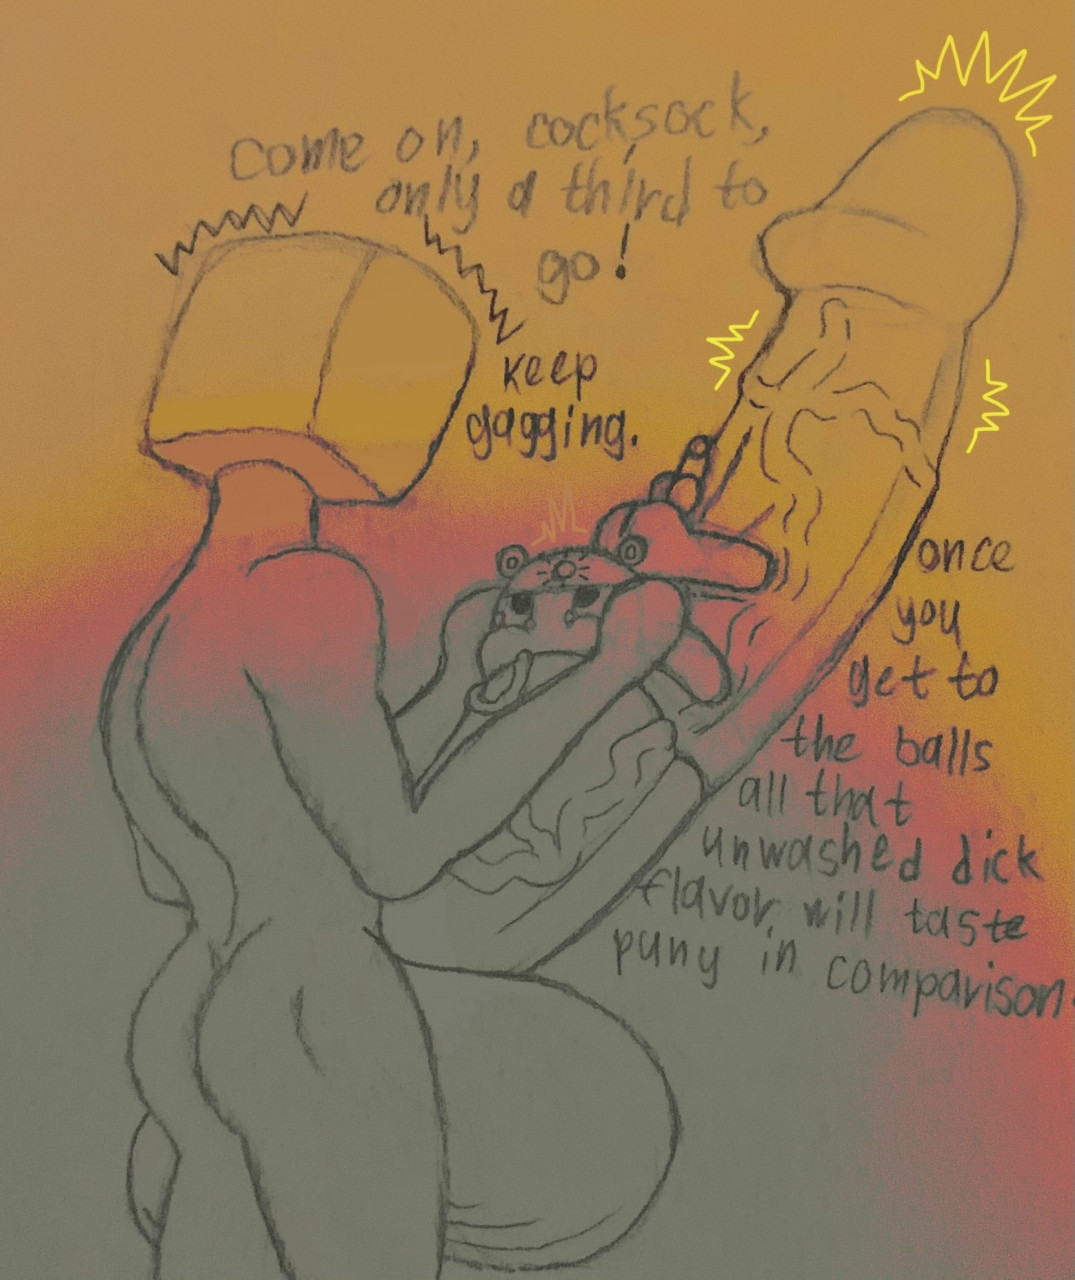 Come on, cocksock,
only a third to
go!
Keep
gagging.
once
you
get to
the balls
all that
unwashed dick
flavor will taste
puny in comparison.